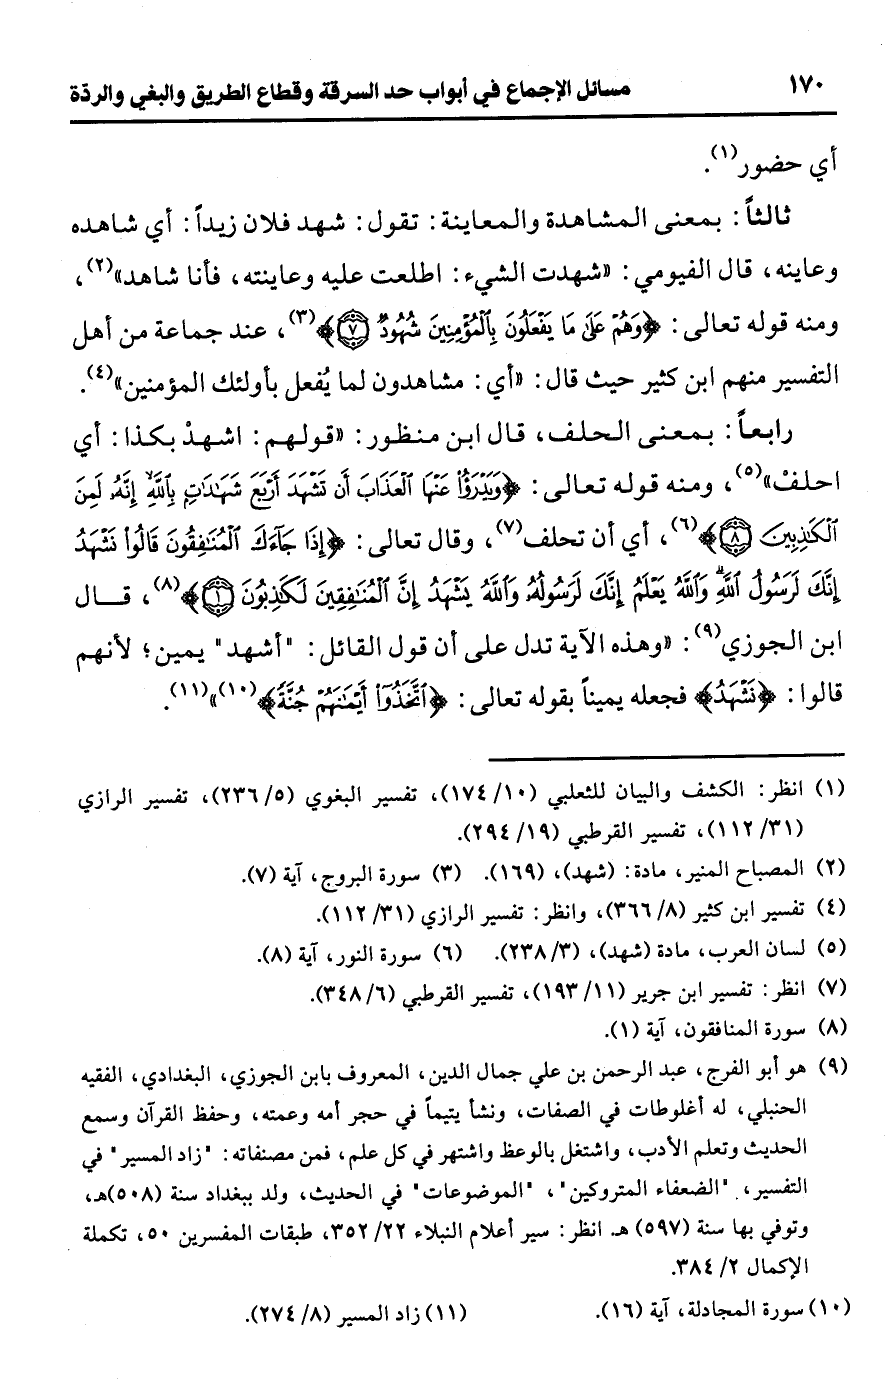 ١٧٠ مسائل الإجماع في أبواب حد السرقة وقطاع الطريق والبغي والردّة
أي حضور(١).
ثالثاً: بمعنى المشاهدة والمعاينة: تقول: شهد فلان زيداً: أي شاهده
وعاينه، قال الفيومي: «شهدت الشيء: اطلعت عليه وعاينته، فأنا شاهد»(٢)،
ومنه قوله تعالى: ﴿وَهُمْ عَلَىٰ مَا يَفْعَلُونَ بِالْمُؤْمِنِينَ شُهُودٌ ٧﴾(٣)، عند جماعة من أهل
التفسير منهم ابن كثير حيث قال: «أي: مشاهدون لما يُفعل بأولئك المؤمنين»(٤).
رابعاً: بمعنى الحلف، قال ابن منظور: «قولهم: اشهدْ بكذا: أي
احلفْ»(٥)، ومنه قوله تعالى: ﴿وَيَدْرَؤُاْ عَنْهَا ٱلْعَذَابَ أَن تَشْهَدَ أَرْبَعَ شَهَٰدَٰتٍ بِٱللَّهِ إِنَّهُۥ لَمِنَ
ٱلْكَٰذِبِينَ ٨﴾(٦)، أي أن تحلف(٧)، وقال تعالى: ﴿إِذَا جَآءَكَ ٱلْمُنَٰفِقُونَ قَالُواْ نَشْهَدُ
إِنَّكَ لَرَسُولُ ٱللَّهِ وَٱللَّهُ يَعْلَمُ إِنَّكَ لَرَسُولُهُۥ وَٱللَّهُ يَشْهَدُ إِنَّ ٱلْمُنَٰفِقِينَ لَكَٰذِبُونَ ١﴾(٨)، قال
ابن الجوزي(٩): «وهذه الآية تدل على أن قول القائل: "أشهد" يمين؛ لأنهم
قالوا: ﴿نَشْهَدُ﴾ فجعله يميناً بقوله تعالى: ﴿ٱتَّخَذُوٓاْ أَيْمَٰنَهُمْ جُنَّةً﴾(١٠)»(١١).
(١) انظر: الكشف والبيان للثعلبي (١٠/ ١٧٤)، تفسير البغوي (٥/ ٢٣٦)، تفسير الرازي
(٣١/ ١١٢)، تفسير القرطبي (١٩/ ٢٩٤).
(٢) المصباح المنير، مادة: (شهد)، (١٦٩). (٣) سورة البروج، آية (٧).
(٤) تفسير ابن كثير (٨/ ٣٦٦)، وانظر: تفسير الرازي (٣١/ ١١٢).
(٥) لسان العرب، مادة (شهد)، (٣/ ٢٣٨). (٦) سورة النور، آية (٨).
(٧) انظر: تفسير ابن جرير (١١/ ١٩٣)، تفسير القرطبي (٦/ ٣٤٨).
(٨) سورة المنافقون، آية (١).
(٩) هو أبو الفرج، عبد الرحمن بن علي جمال الدين، المعروف بابن الجوزي، البغدادي، الفقيه
الحنبلي، له أغلوطات في الصفات، ونشأ يتيماً في حجر أمه وعمته، وحفظ القرآن وسمع
الحديث وتعلم الأدب، واشتغل بالوعظ واشتهر في كل علم، فمن مصنفاته: "زاد المسير" في
التفسير، "الضعفاء المتروكين"، "الموضوعات" في الحديث، ولد ببغداد سنة (٥٠٨)هـ،
وتوفي بها سنة (٥٩٧) هـ. انظر: سير أعلام النبلاء ٢٢/ ٣٥٢، طبقات المفسرين ٥٠، تكملة
الإكمال ٢/ ٣٨٤.
(١٠) سورة المجادلة، آية (١٦). (١١) زاد المسير (٨/ ٢٧٤).